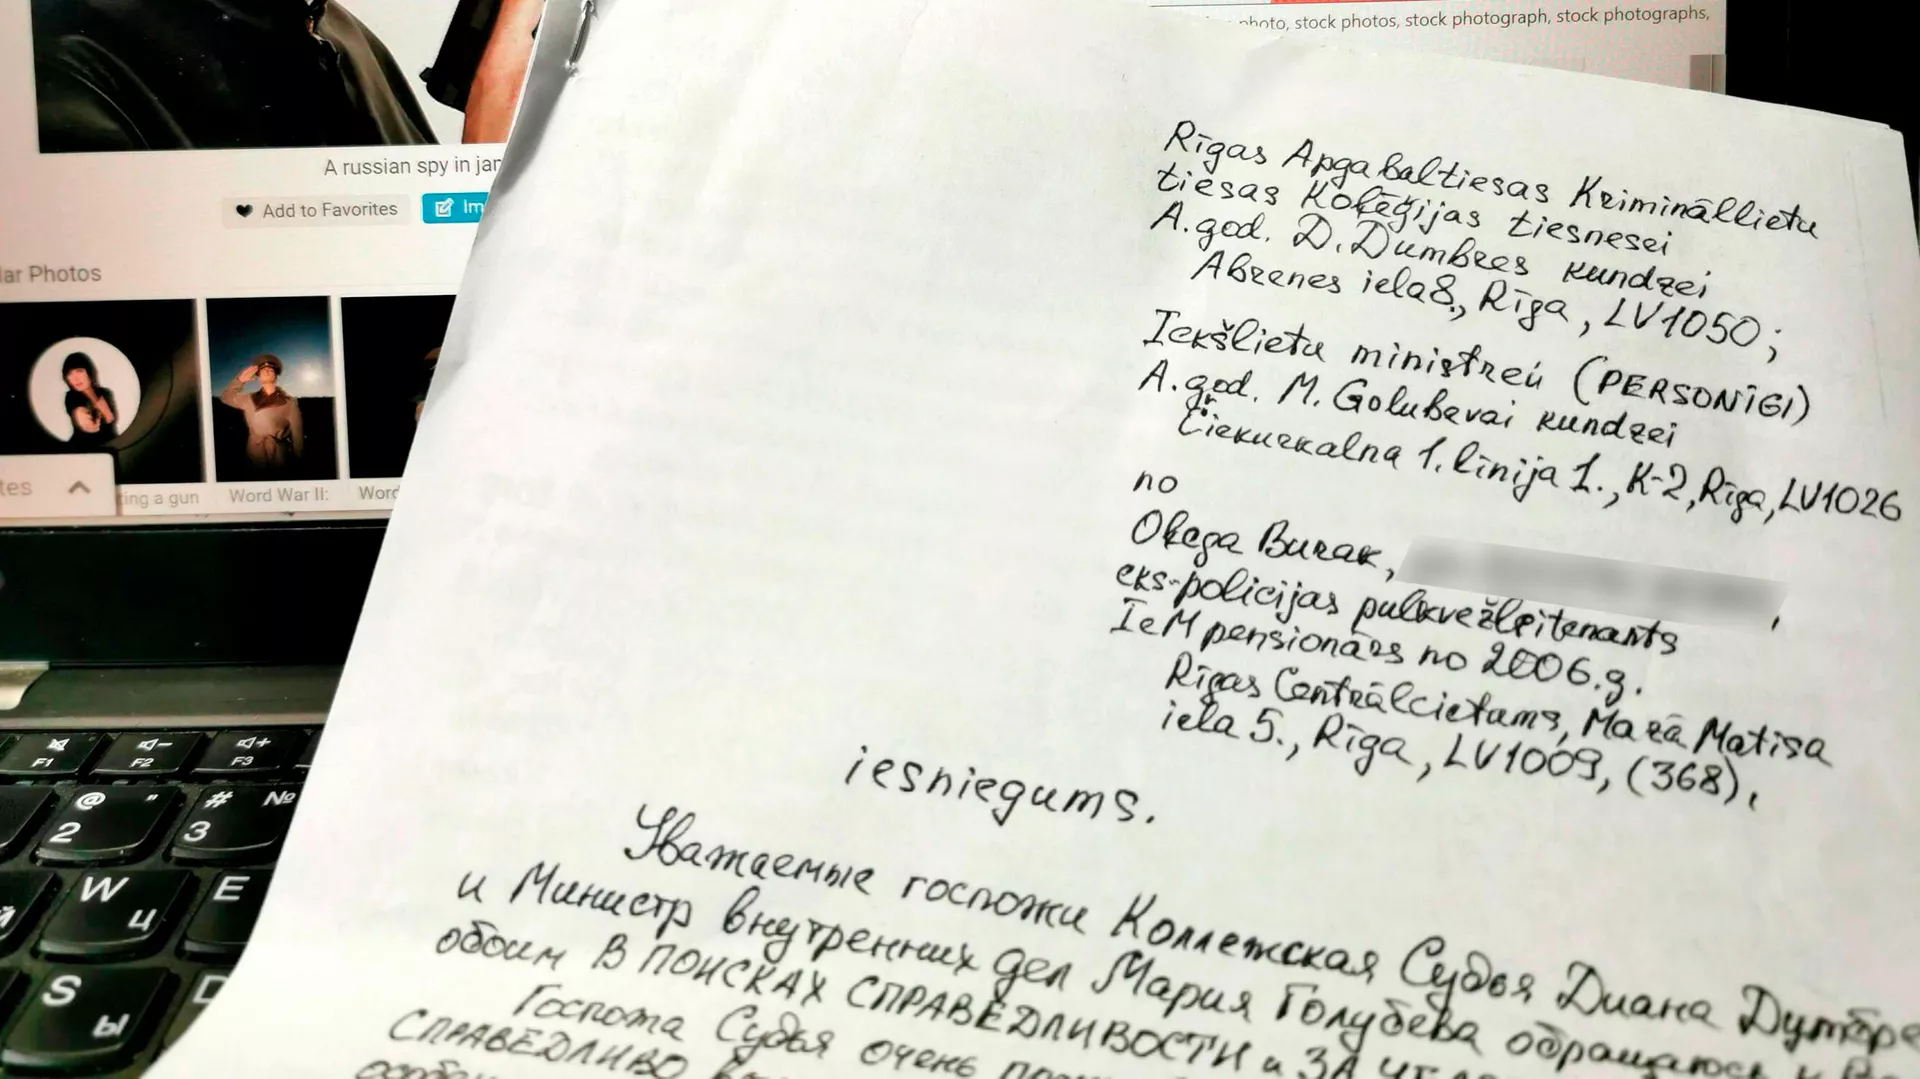 photo, stock photos, stock photograph, stock photographs,
A russian spy in
Add to Favorites
lar Photos
ting a gun
Word War II:
Rīgas Apgabaltiesas Kriminăllietu
tiesas Koļēģijas tiesnesei
A.god. D. Dumbres kundzei
Abrenes iela 8., Rīga, LV1050;
Iekšlietu ministrei (PERSONĪGI)
A.god. M. Golubevai kundzei
Čiekurkalna 1. līnija 1., K-2, Rīga, LV1026
no
Oļega Burak,
eks-policijas pulkvežleitenants
IeM pensionārs no 2006.g.
Rīgas Centrālcietums, Mazā Matisa
iela 5., Rīga, LV1009, (368),
iesniegums.
Уважаемые госпожи Коллежская Судья Диана
и Министр внутренних дел Мария Голубева обращаюсь к
обоим В ПОИСКАХ СПРАВЕДЛИВОСТИ и ЗА
Госпожа Судья очень
СПРАВЕДЛИВО
F1
F2
F3
@ "
2
# №
3
W
Ц
E
S
Ы